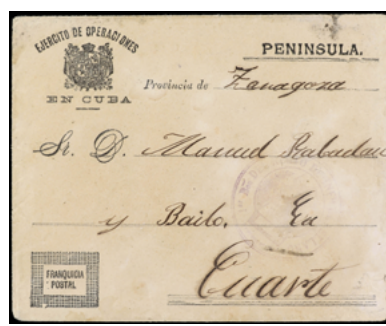 EJERCITO DE OPERACIONES
EN CUBA
PENINSULA.
Provincia de Zaragoza
Sr. D. Manuel Rabadan
y Bailo. En
Cuarte
FRANQUICIA
POSTAL